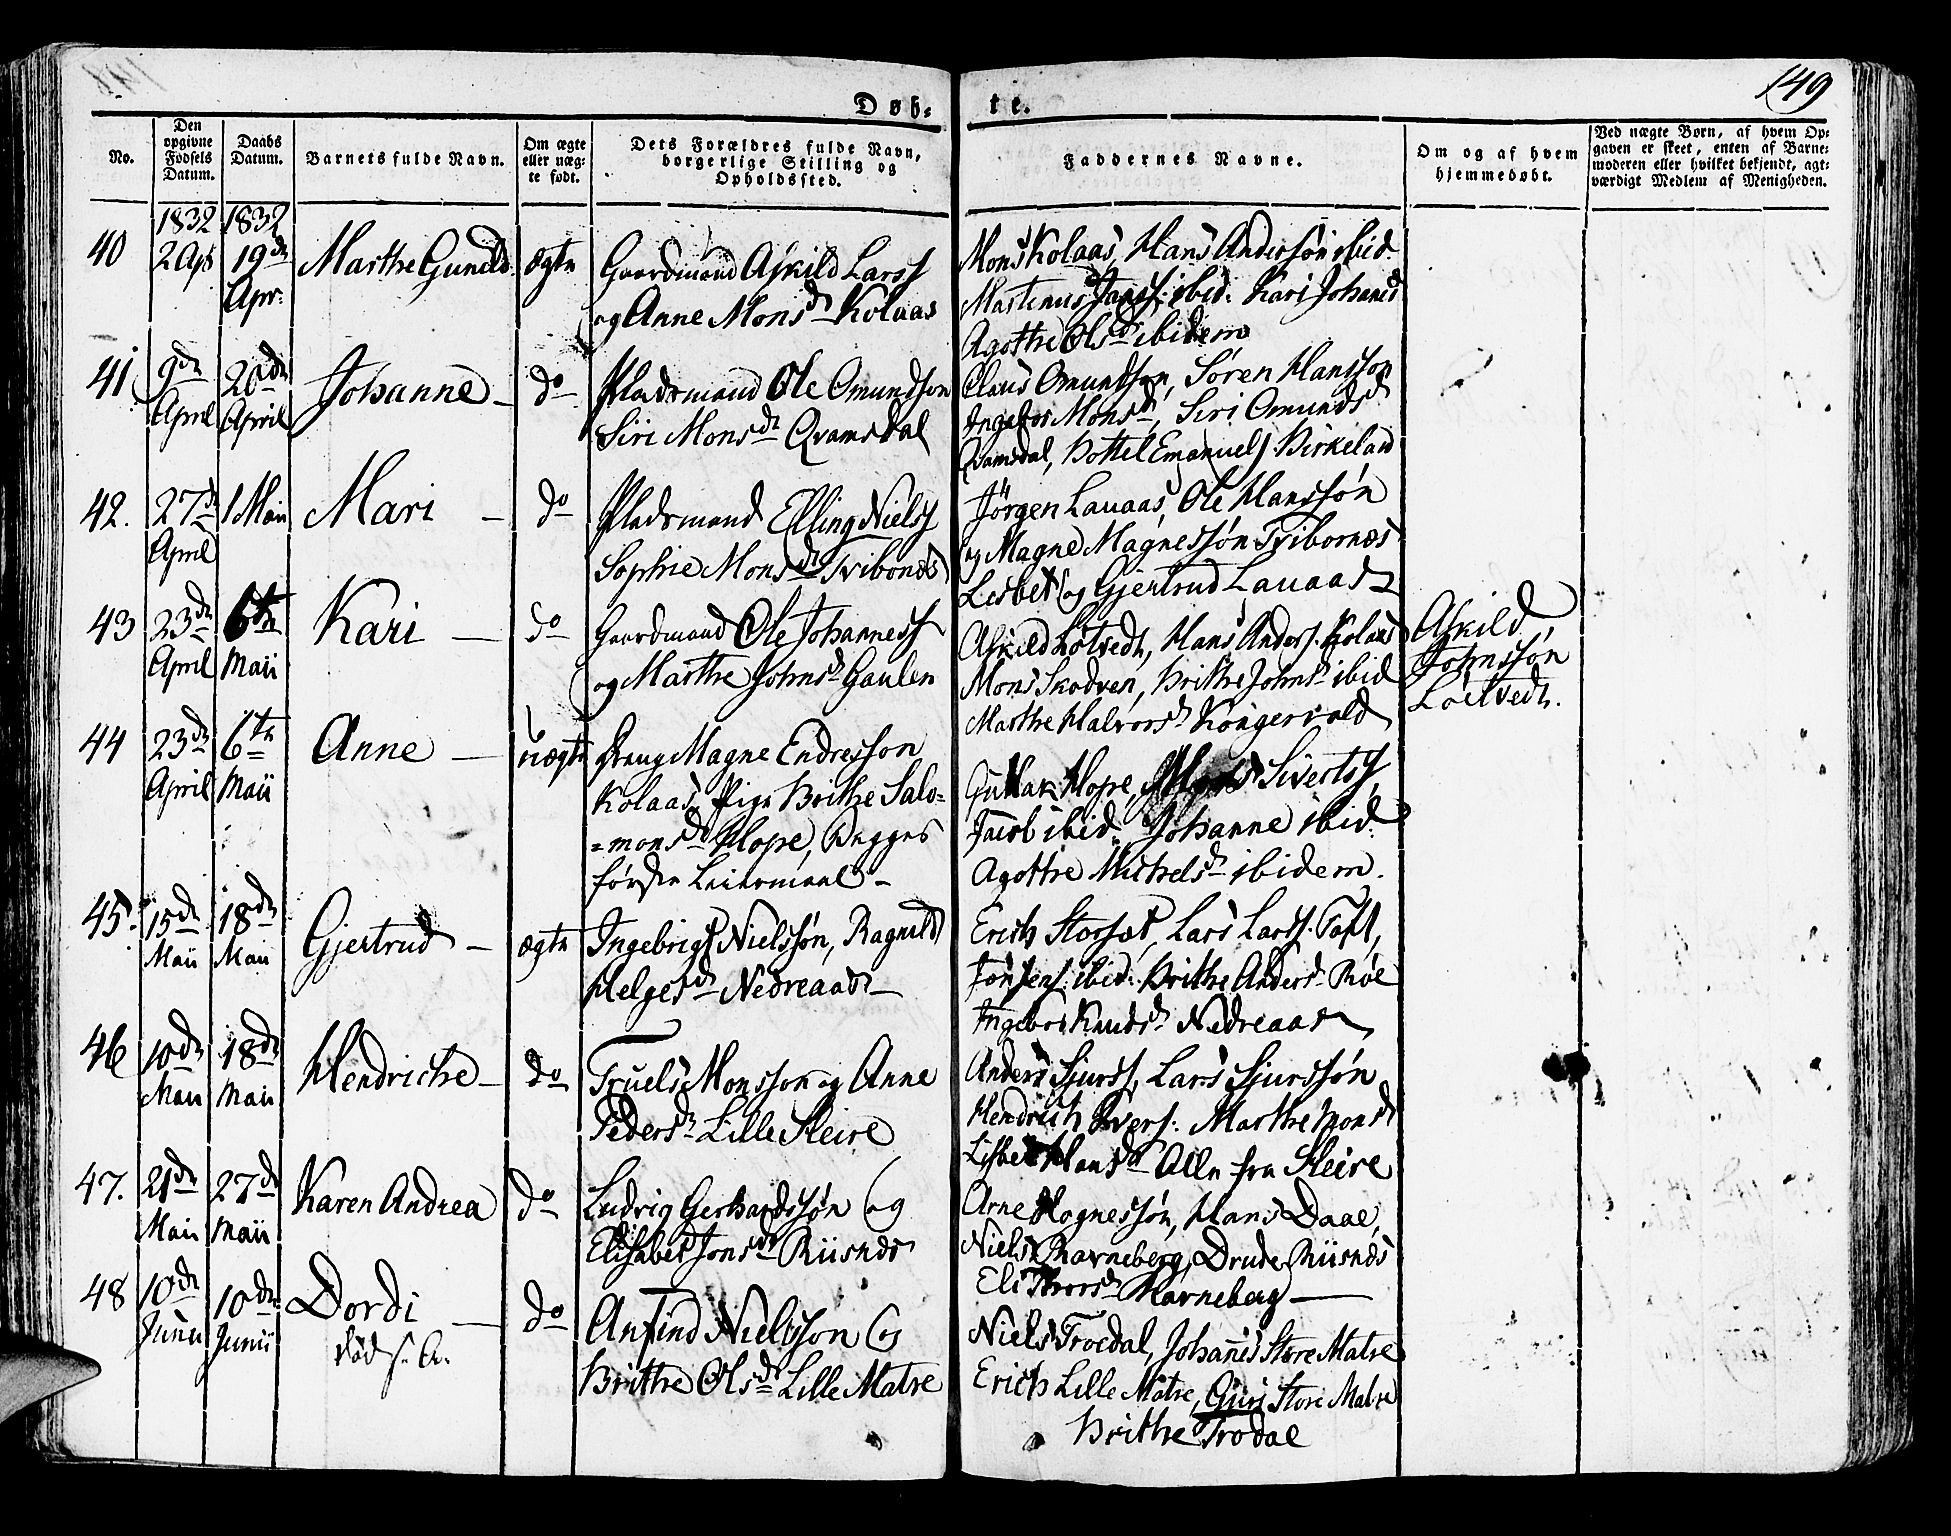 149
Døb-
te.
No.
Den opgivne Fødsels Datum.
Daabs Datum.
Barnets fulde Navn.
Om ægte eller uægte født.
Dets Forældres fulde Navn, borgerlige Stilling og Opholdssted.
Faddernes Navne.
Om og af hvem hjemmedøbt.
Ved uægte Børn, af hvem Opgaven er skeet, enten af Barnemoderen eller hvilket bekjendt, agtværdigt Medlem af Menigheden.
1832 1832
40 2 Apr 19de Apr: Marthe Gunild ægte
Gaardmand Askild Larss
og Anne Monsd Kolaas
Mons Kolaas, Hans Anderssøn ibid.
Martinus ibid: Kari Johansd
Agothe Olsd ibidem
41 9de April 20de April Johanne do
Pladsmand Ole Omundson
Siri Monsd Qvamsdal
Claus Omundson, Søren Hansson
Monsd, Siri Omundsd
Qvamsdal, Bottel Emanuels Birkeland
42. 27de April 1 Maii Mari do
Pladsmand Elling Niels
Sophie Monsd
Jørgen Lavaas, Ole Hanssøn
og Magne Magnessøn
Lisbet og Gjertrud Lavaas
43 23de April 6te Maii Kari do
Gaardmand Ole Johanness
og Marthe Johnsd Gaulen
Askild Løtvedt, Hans Anders. Kolaas
Mons Skodven, Brithe Johnsd ibid
Marthe Halvorsd Kongervold
Askild
Johnssøn
Løetvedt.
44 23de April 6te Maii Anne uægte
Magne Endresson
Kolaas, Pige Brithe Salo=
=monsd Hope, Begges
første Leiermaal
Hope, Sivertss,
Jacob ibid. Johanne ibid.
Agothe Michelsd ibidem.
45. 15de Maii 18de Maii Gjertrud ægte
Ingebrigt Nielssøn, Ragnild
Helgesd Nedreaas
Erich Storsæt, Lars Larss. Toft,
ibid: Brithe Andersd Røe
Ingebor Knudsd Nedreaas
46 10de Maii 18de Maii Hendriche do
Truels Monsson og Anne
Pedersd Lille Steire
Anders Sjurss, Lars Sjurssøn
Hendrich Ivers: Marthe Monsd
Lisbet Hansd Alle fra Steire
47. 21de Maii 27de Maii Karen Andrea do
Ludvig Gerhardssøn og
Elisabet Jonsd Riisnæs
Arne Hognessøn, Hans Daae,
Niels Barneberg, Drude Riisnæs
Eli Thorsd Barneberg
48 10de Junii 10de Junii Dordi do
død s. A.
Anfind Nielsson og
Brithe Olsd Lille Matre
Niels Troedal, Johanes Store Matre
Erich Lille Matre, Guri Store Matre
Brithe Trodal